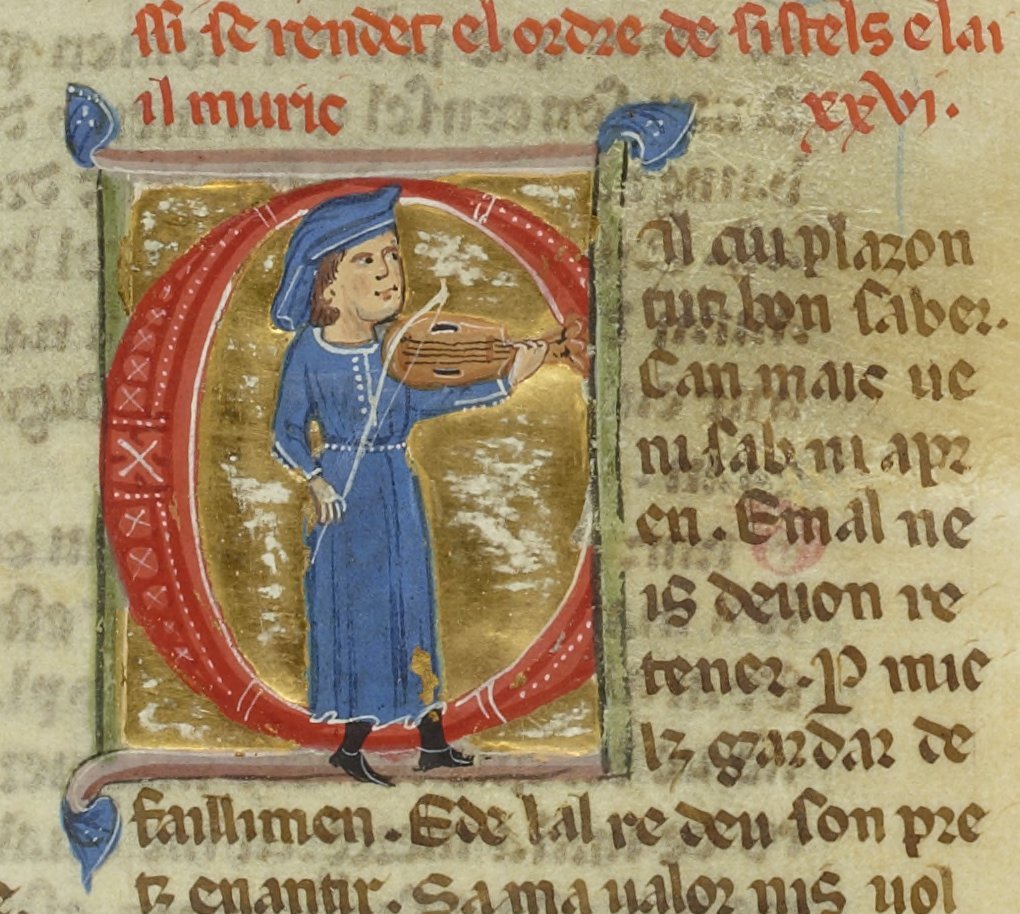 ssi se rendet el ordre de sistels e lai
il muric xxvi.
Il cui plazon
tut bon saber.
Can mais ue
ni sab ni apr
en. E mal ne
is deuon re
tener. P mie
lz gardar de
faillimen. E de lal re deu son pre
tz enantir. Sa ma ualor nis uol